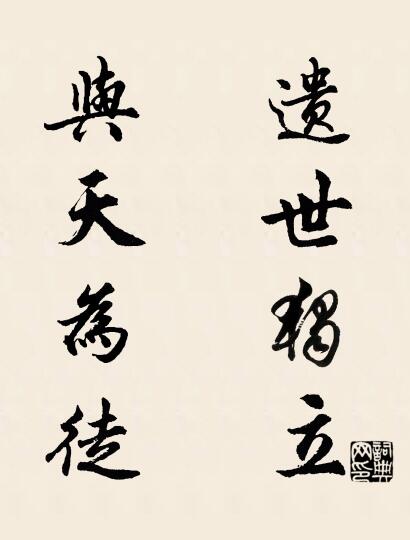 遺世獨立
與天為徒
詞典网印